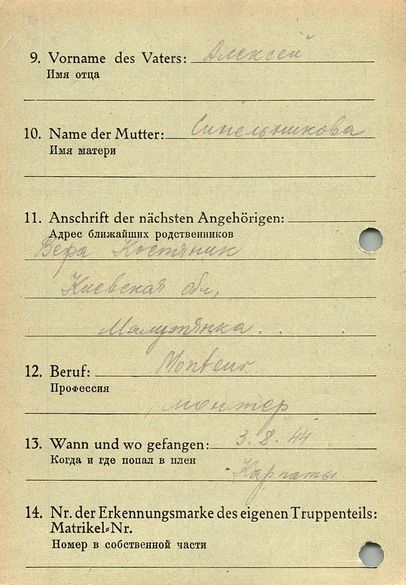 9. Vorname des Vaters: Алексей
Имя отца
10. Name der Mutter: Синельникова
Имя матери
11. Anschrift der nächsten Angehörigen:
Адрес ближайших родственников
Вера Костяник
Киевская обл,
Малютянка
12. Beruf: Monteur
Профессия
монтер
13. Wann und wo gefangen: 3.8.44
Когда и где попал в плен
Карпаты
14. Nr. der Erkennungsmarke des eigenen Truppenteils:
Matrikel-Nr.
Номер в собственной части